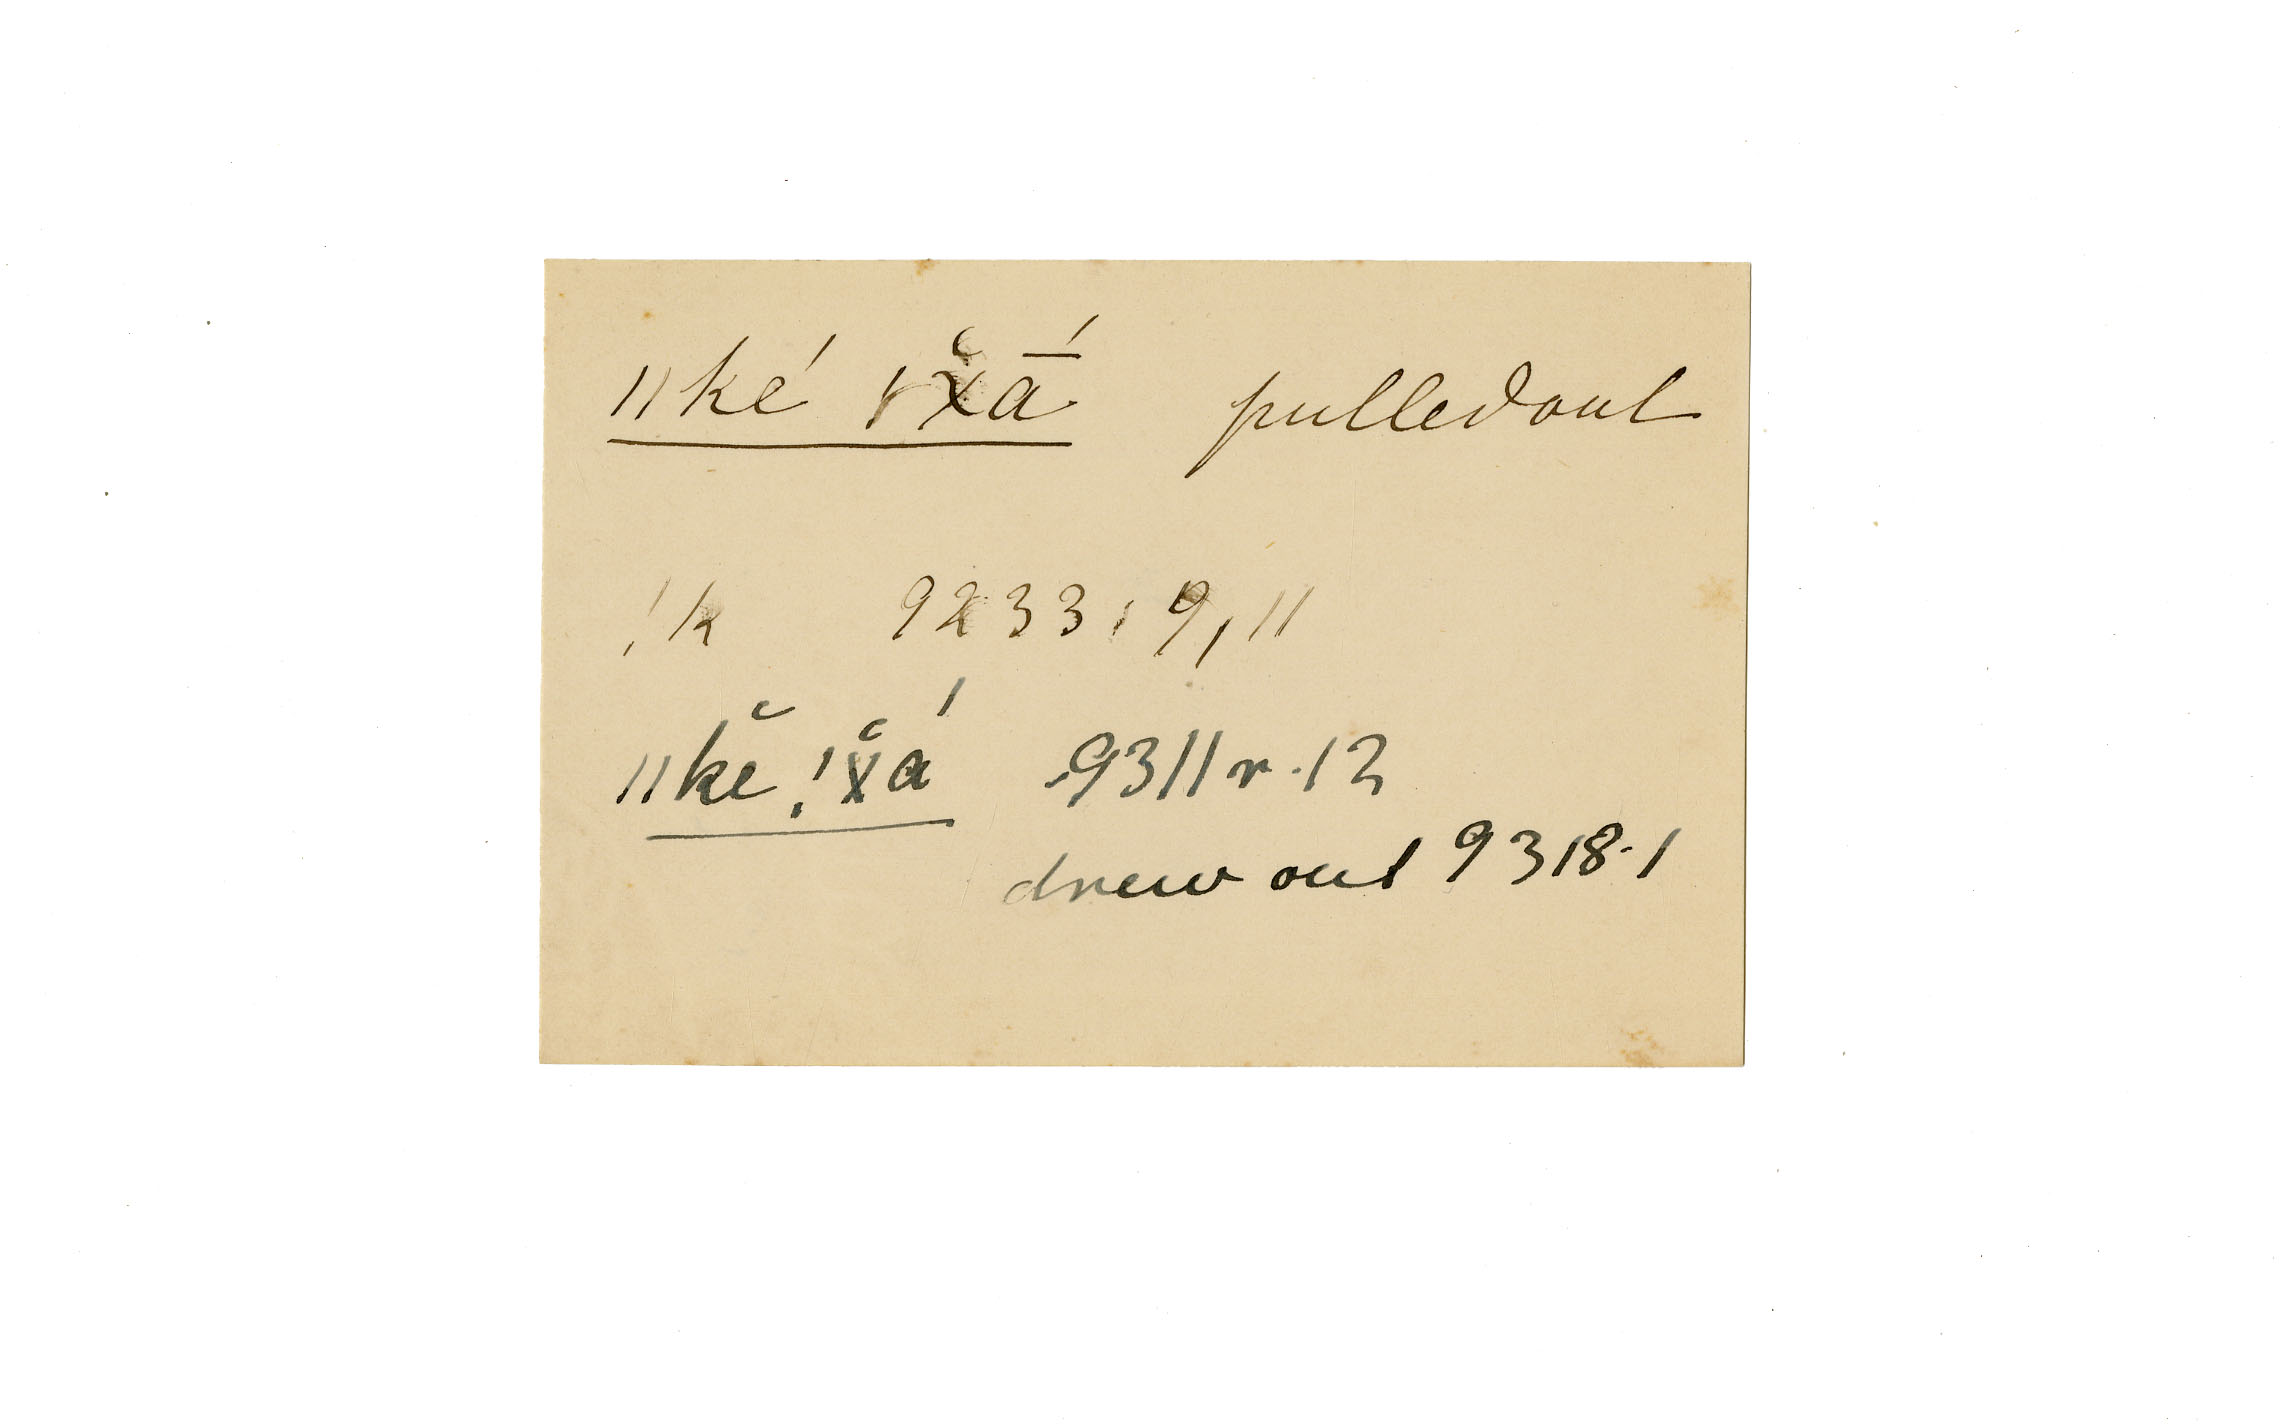 ǁké ꜝx̆ā́ pulled out
!k 9233, 9, 11
ǁkĕ !x̆á 9311r.12
drew out 9318.1